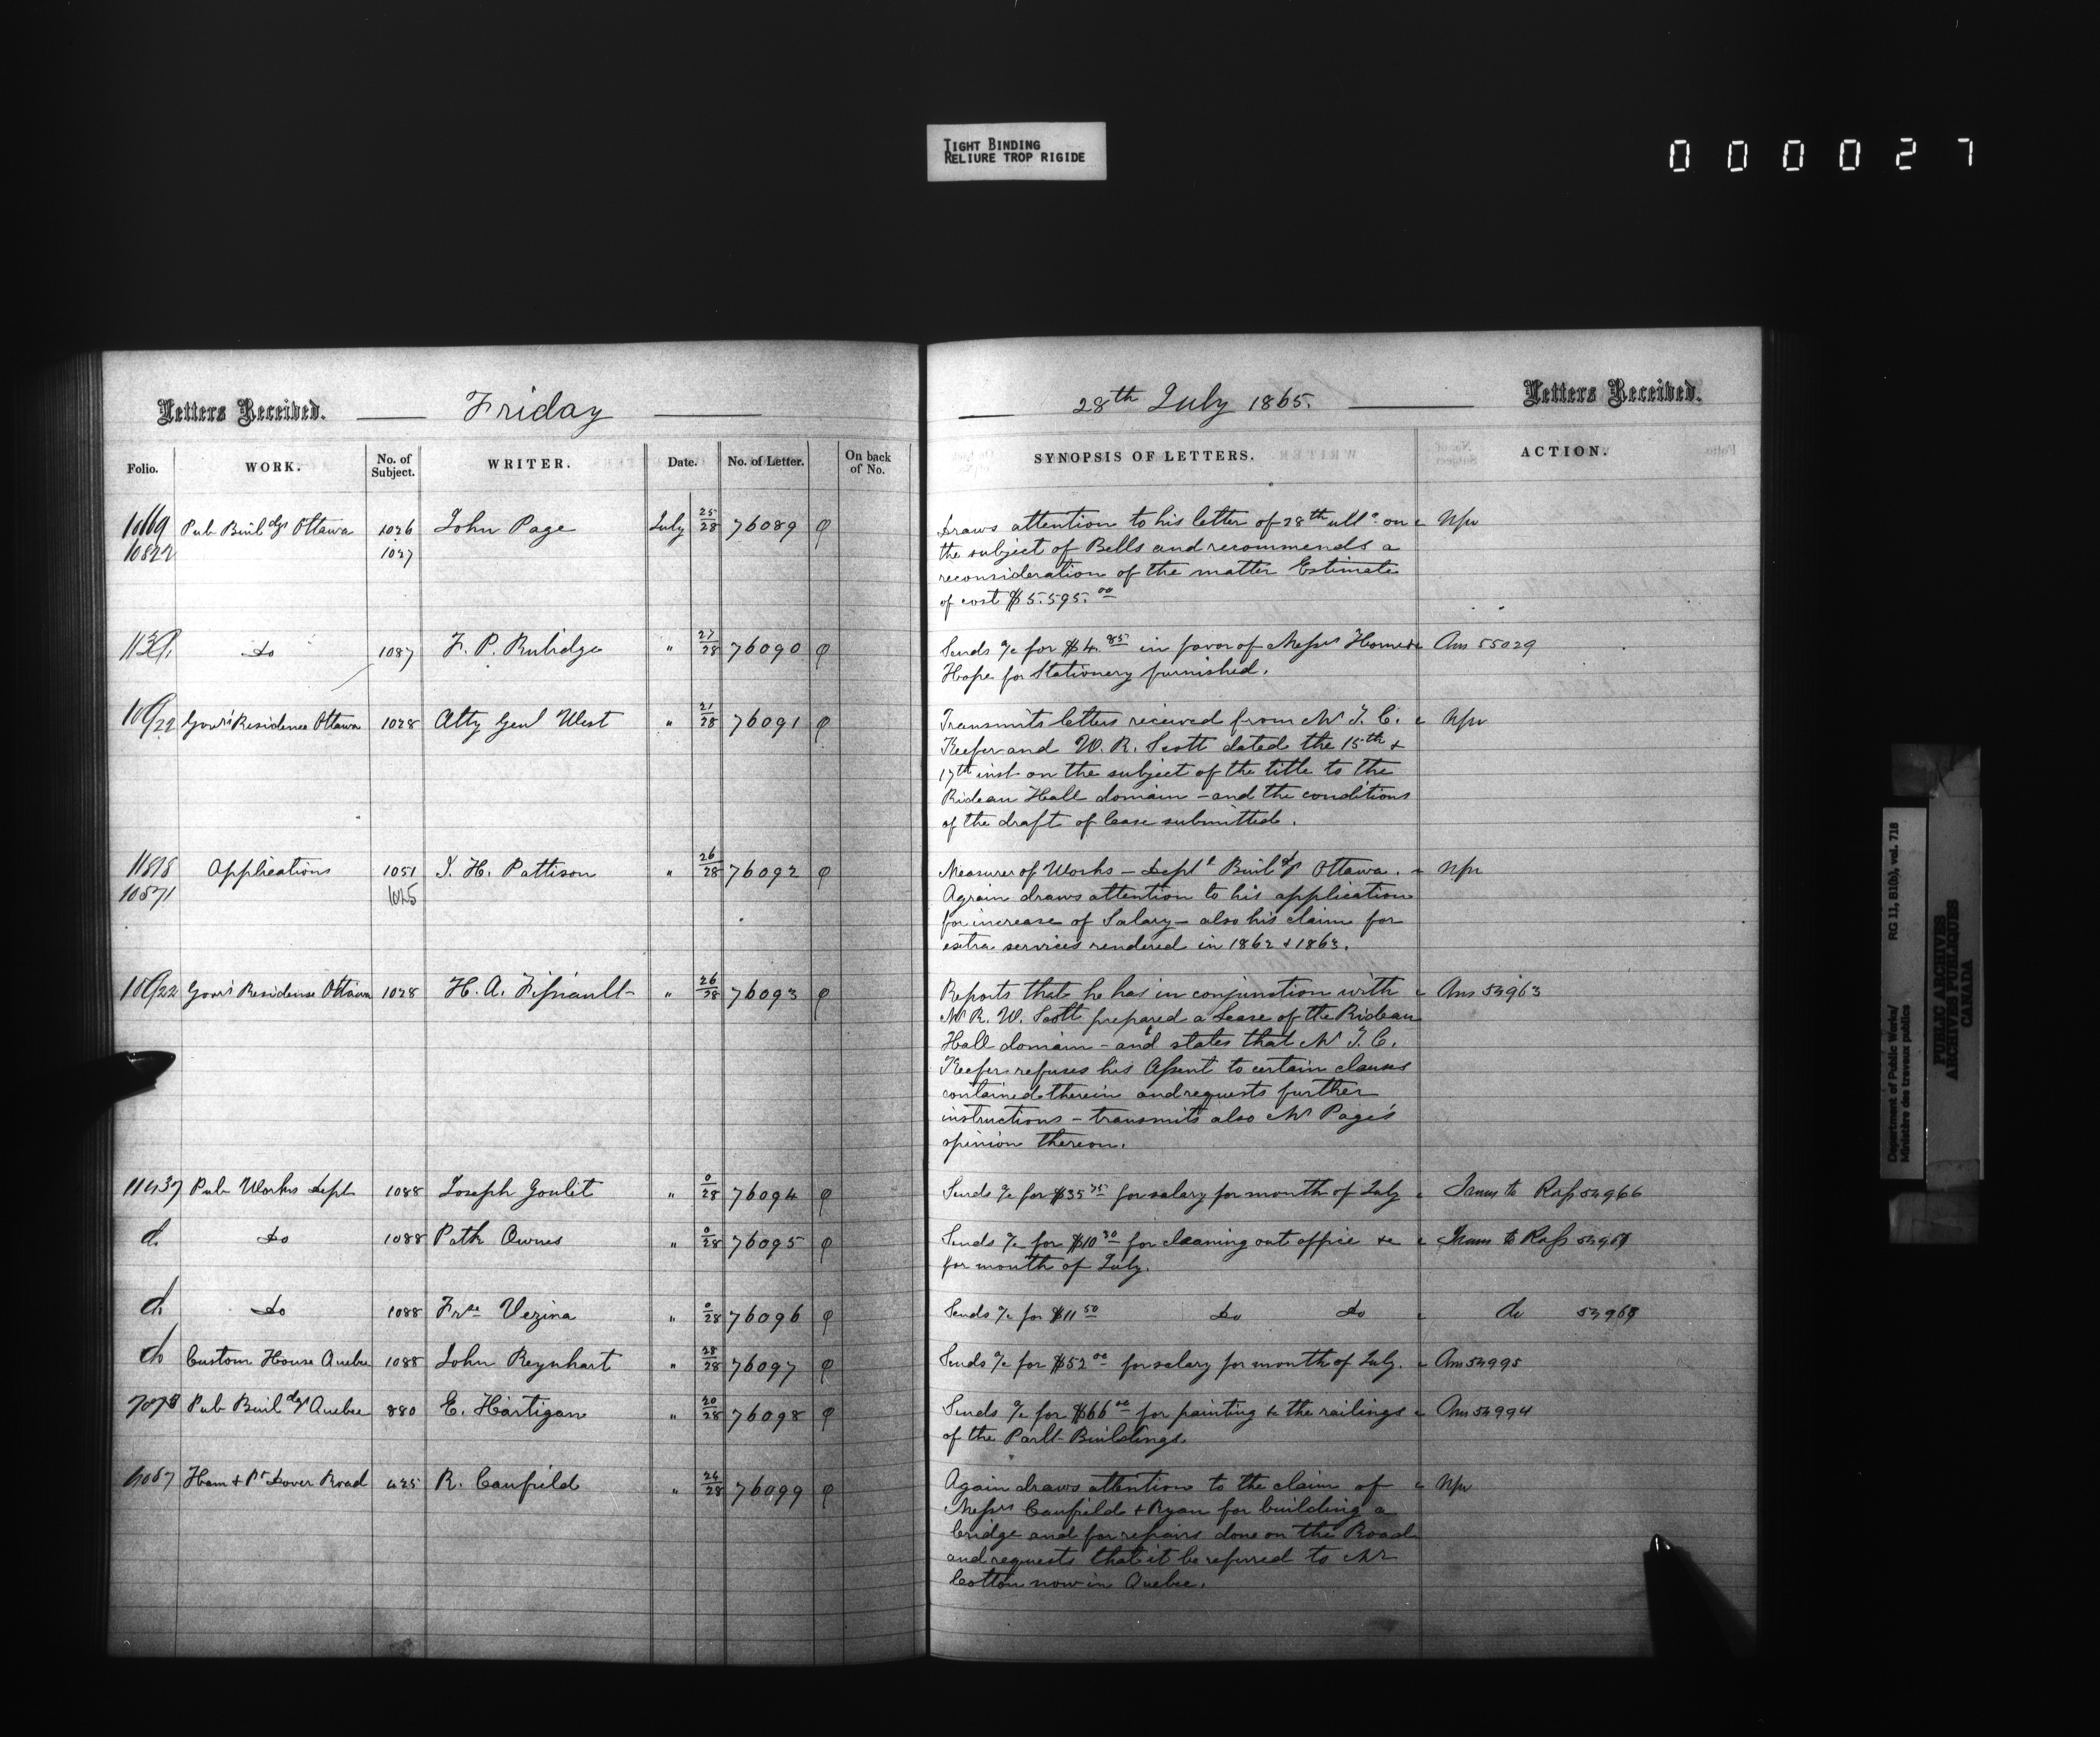 TIGHT BINDING
RELIURE TROP RIGIDE
000027
Letters Received. Friday 28th July 1865. Letters Received.
Folio. WORK. No. of Subject. WRITER. Date. No. of Letter. On back of No. SYNOPSIS OF LETTERS. ACTION.
Pub Buildgs Ottawa 1026 John Page July 25/28 76089 Draws attention to his letter of 28th ullo on
10822 1027 the subject of Bells and recommends a
reconsideration of the matter Estimate
of cost $5.595.00
do 1087 F. P. Rubidge " 27/28 76090 Sends a/c for $4.85 in favor of Messrs Hunter Ans 55029
Hope for Stationery furnished.
Govrs Residence Ottawa 1028 Atty Genl West " 21/28 76091 Transmits letters received from Mr T. C.
Keefer and W. R. Scott dated the 15th &
17th inst on the subject of the title to the
Rideau Hall domain - and the conditions
of the draft of lease submitted.
11818 Applications 1051 J. H. Pattison " 26/28 76092 Measurer of Works - Deptl Buildgs Ottawa.
10571 1025 Again draws attention to his application
for increase of Salary - also his claim for
extra services rendered in 1862 & 1863.
Govrs Residence Ottawa 1028 H. A. Fissiault " 26/28 76093 Reports that he has in conjunction with Ans 54963
Mr R. W. Scott prepared a Lease of the Rideau
Hall domain - and states that Mr T. C.
Keefer refuses his Assent to certain clauses
contained therein and requests further
instructions - transmits also Mr Page's
opinion thereon.
11437 Pub Works Dept 1088 Joseph Goulet " 0/28 76094 Sends a/c for $35.75 for salary for month of July Trans to 54966
do 1088 Patk Owens " 0/28 76095 Sends a/c for $10.30 for cleaning out office &c Trans to
for month of July.
do 1088 Frse Vezina " 0/28 76096 Sends a/c for $11.50 do do do
do Custom House Quebec 1088 John Reynhart " 28/28 76097 Sends a/c for $52.00 for salary for month of July. Ans 54995
Pub Buildgs Quebec 880 E. Hartigan " 20/28 76098 Sends a/c for $66.00 for painting &c the railings Ans 54994
of the Parlt Buildings.
Ham & Pt Dover Road 425 R. Caufield " 24/28 76099 Again draws attention to the claim of
Messrs Caufield & Ryan for building a
bridge and for repairs done on the Road
and requests that it be referred to Mr
Cotton now in Quebec.
Department of Public Works/
Ministère des travaux publics
RG 11, B1(b), vol. 718
PUBLIC ARCHIVES
ARCHIVES PUBLIQUES
CANADA